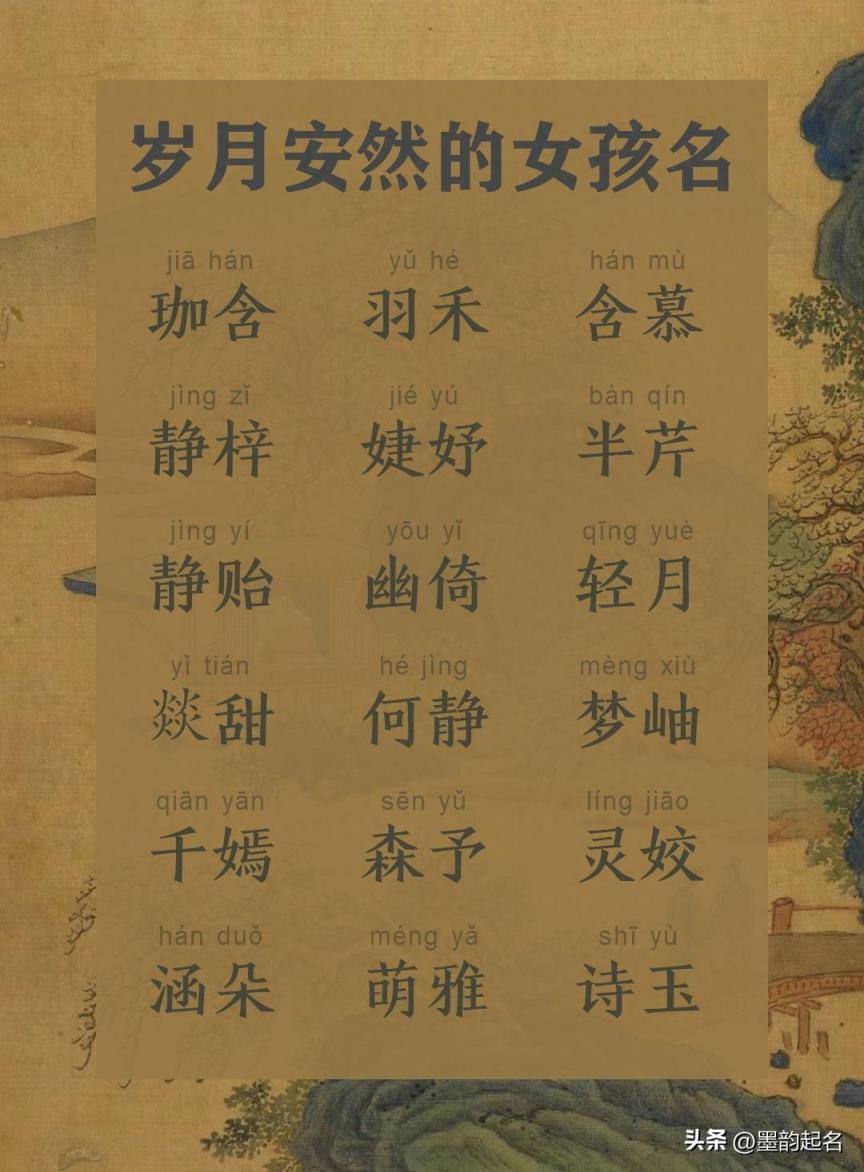 岁月安然的女孩名
jiā hán yǔ hé hán mù
珈含 羽禾 含慕
jìng zǐ jié yú bàn qín
静梓 婕妤 半芹
jìng yí yōu yǐ qīng yuè
静贻 幽倚 轻月
yì tián hé jìng mèng xiù
燚甜 何静 梦岫
qiān yān sēn yǔ líng jiāo
千嫣 森予 灵姣
hán duǒ méng yǎ shī yù
涵朵 萌雅 诗玉
头条 @墨韵起名